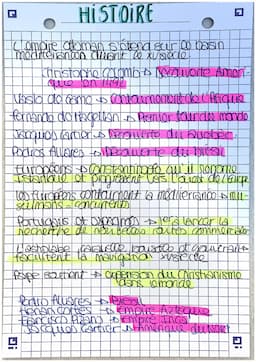 HISTOIRE
L'empire ottoman s'étend sur le bassin
méditerranéen durant le XVsiècle
Christophe Colomb → Découverte Améri-
que en 1492
Vasco de Gama → Contournement de l'Afrique
Fernando de Magellan → Premier tour du monde
Jacques Cartier → Découverte du Québec
Pedros Alvares → Découverte du Brésil
Européens → Constantinople qu'il nomme
Istanbul et progressent vers l'ouest de l'Europe
les européens continuent la méditerranée → mu-
sulmans - concurrents
Portugais et Espagnols → se lancer la
recherche de nouvelles routes commerciales
L'astrolabe, caravelle, boussole et gouvernail
facilitent la navigation XVsiècle
Pape soutient → expansion du Christianisme
dans le monde
Pedro Alvares → Brésil
Hernan Cortes → Empire Aztèque
Francisco Pizarro → Empire Inca
Jacques Cartier → Amérique du Nord